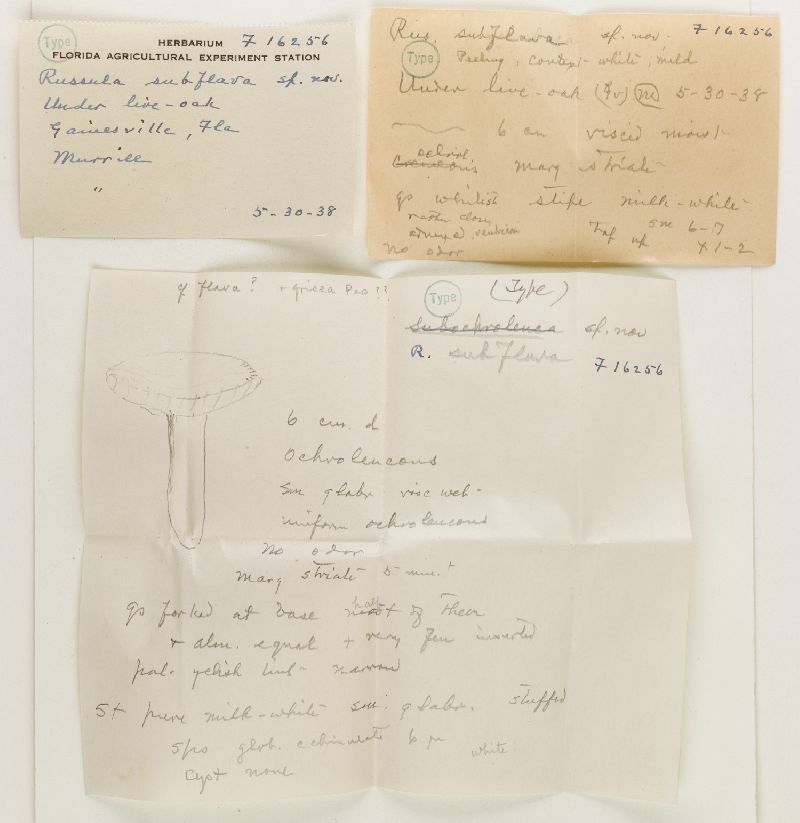 Type
HERBARIUM F 16256
FLORIDA AGRICULTURAL EXPERIMENT STATION
Russula subflava sp. nov.
Under live-oak
Gainesville, Fla
Murrill
"
5-30-38
Rus. subflava sp. nov. F 16256
Type
Peeling, context white, mild
Under live-oak 5-30-38
6 cm viscid moist
marg striate
gs whitish stipe milk-white
rather close sm 6-7
adnexed, Tap up x 1-2
No odor
cf flava?
Type (Type)
Subochroleuca sp. nov
R. subflava
F 16256
6 cm. d
Ochroleucous
sm glabr visc wet
uniform ochroleucous
No odor
marg striate 5 mm. +
gs forked at base half of them
+ alm. equal + very few inserted
pal. yelish tint narrow
St pure milk-white sm. glabr. stuffed
Spo glob. echinulate 6 µ
white
Cyst none